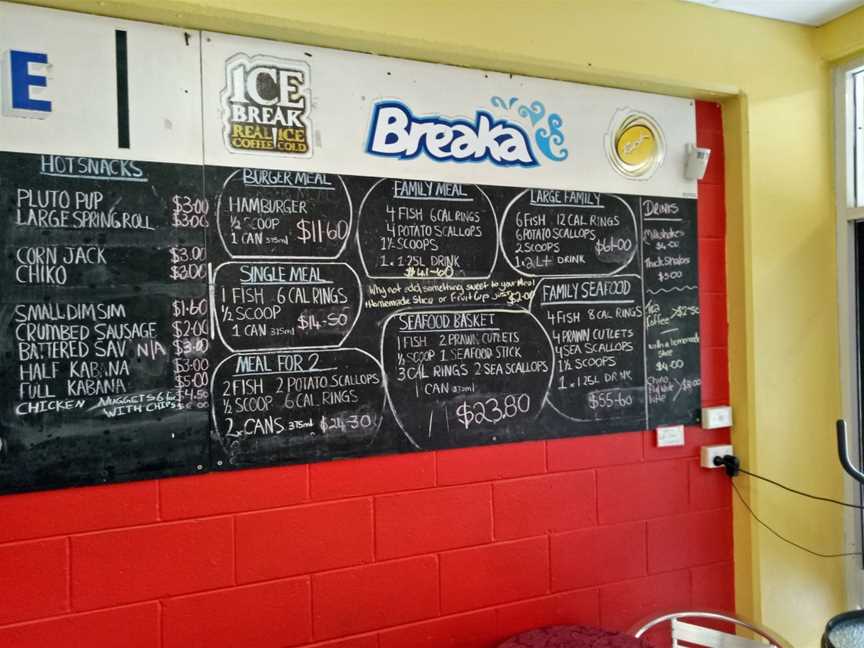 E
ICE
BREAK
REAL ICE
COFFEE COLD
Breaka
HOT SNACKS
PLUTO PUP $3.00
LARGE SPRING ROLL $3.00
CORN JACK $3.00
CHIKO
SMALL DIM SIM $1.60
CRUMBED SAUSAGE $2.00
BATTERED SAV N/A
HALF KABANA $3.00
FULL KABANA $5.00
CHICKEN NUGGETS 6 $4.50
WITH CHIPS
BURGER MEAL
HAMBURGER
½ SCOOP
1 CAN 375ml $11.60
SINGLE MEAL
1 FISH 6 CAL RINGS
½ SCOOP
1 CAN 375ml $14-50
MEAL FOR 2
2 FISH 2 POTATO SCALLOPS
½ SCOOP 6 CAL RINGS
2 CANS 375ml $24-30
FAMILY MEAL
4 FISH 6 CAL RINGS
4 POTATO SCALLOPS
1½ SCOOPS
1.125L DRINK
$41-60
Why not add something sweet to your Meal
Homemade Slice or Fruit Cup JUST $2.00
SEAFOOD BASKET
1 FISH 2 PRAWN CUTLETS
½ SCOOP 1 SEAFOOD STICK
3 CAL RINGS 2 SEA SCALLOPS
1 CAN 375ml
$23.80
LARGE FAMILY
6 FISH 12 CAL RINGS
6 POTATO SCALLOPS
2 SCOOPS $61-00
1.2Lt DRINK
FAMILY SEAFOOD
4 FISH 8 CAL RINGS
4 PRAWN CUTLETS
4 SEA SCALLOPS
1½ SCOOPS
1.125L DRINK
$55-60
DRINKS
Milkshakes
$4.00
Thick Shakes
$5.00
Tea
Coffee > $2-50
with a homemade
slice
$4.00